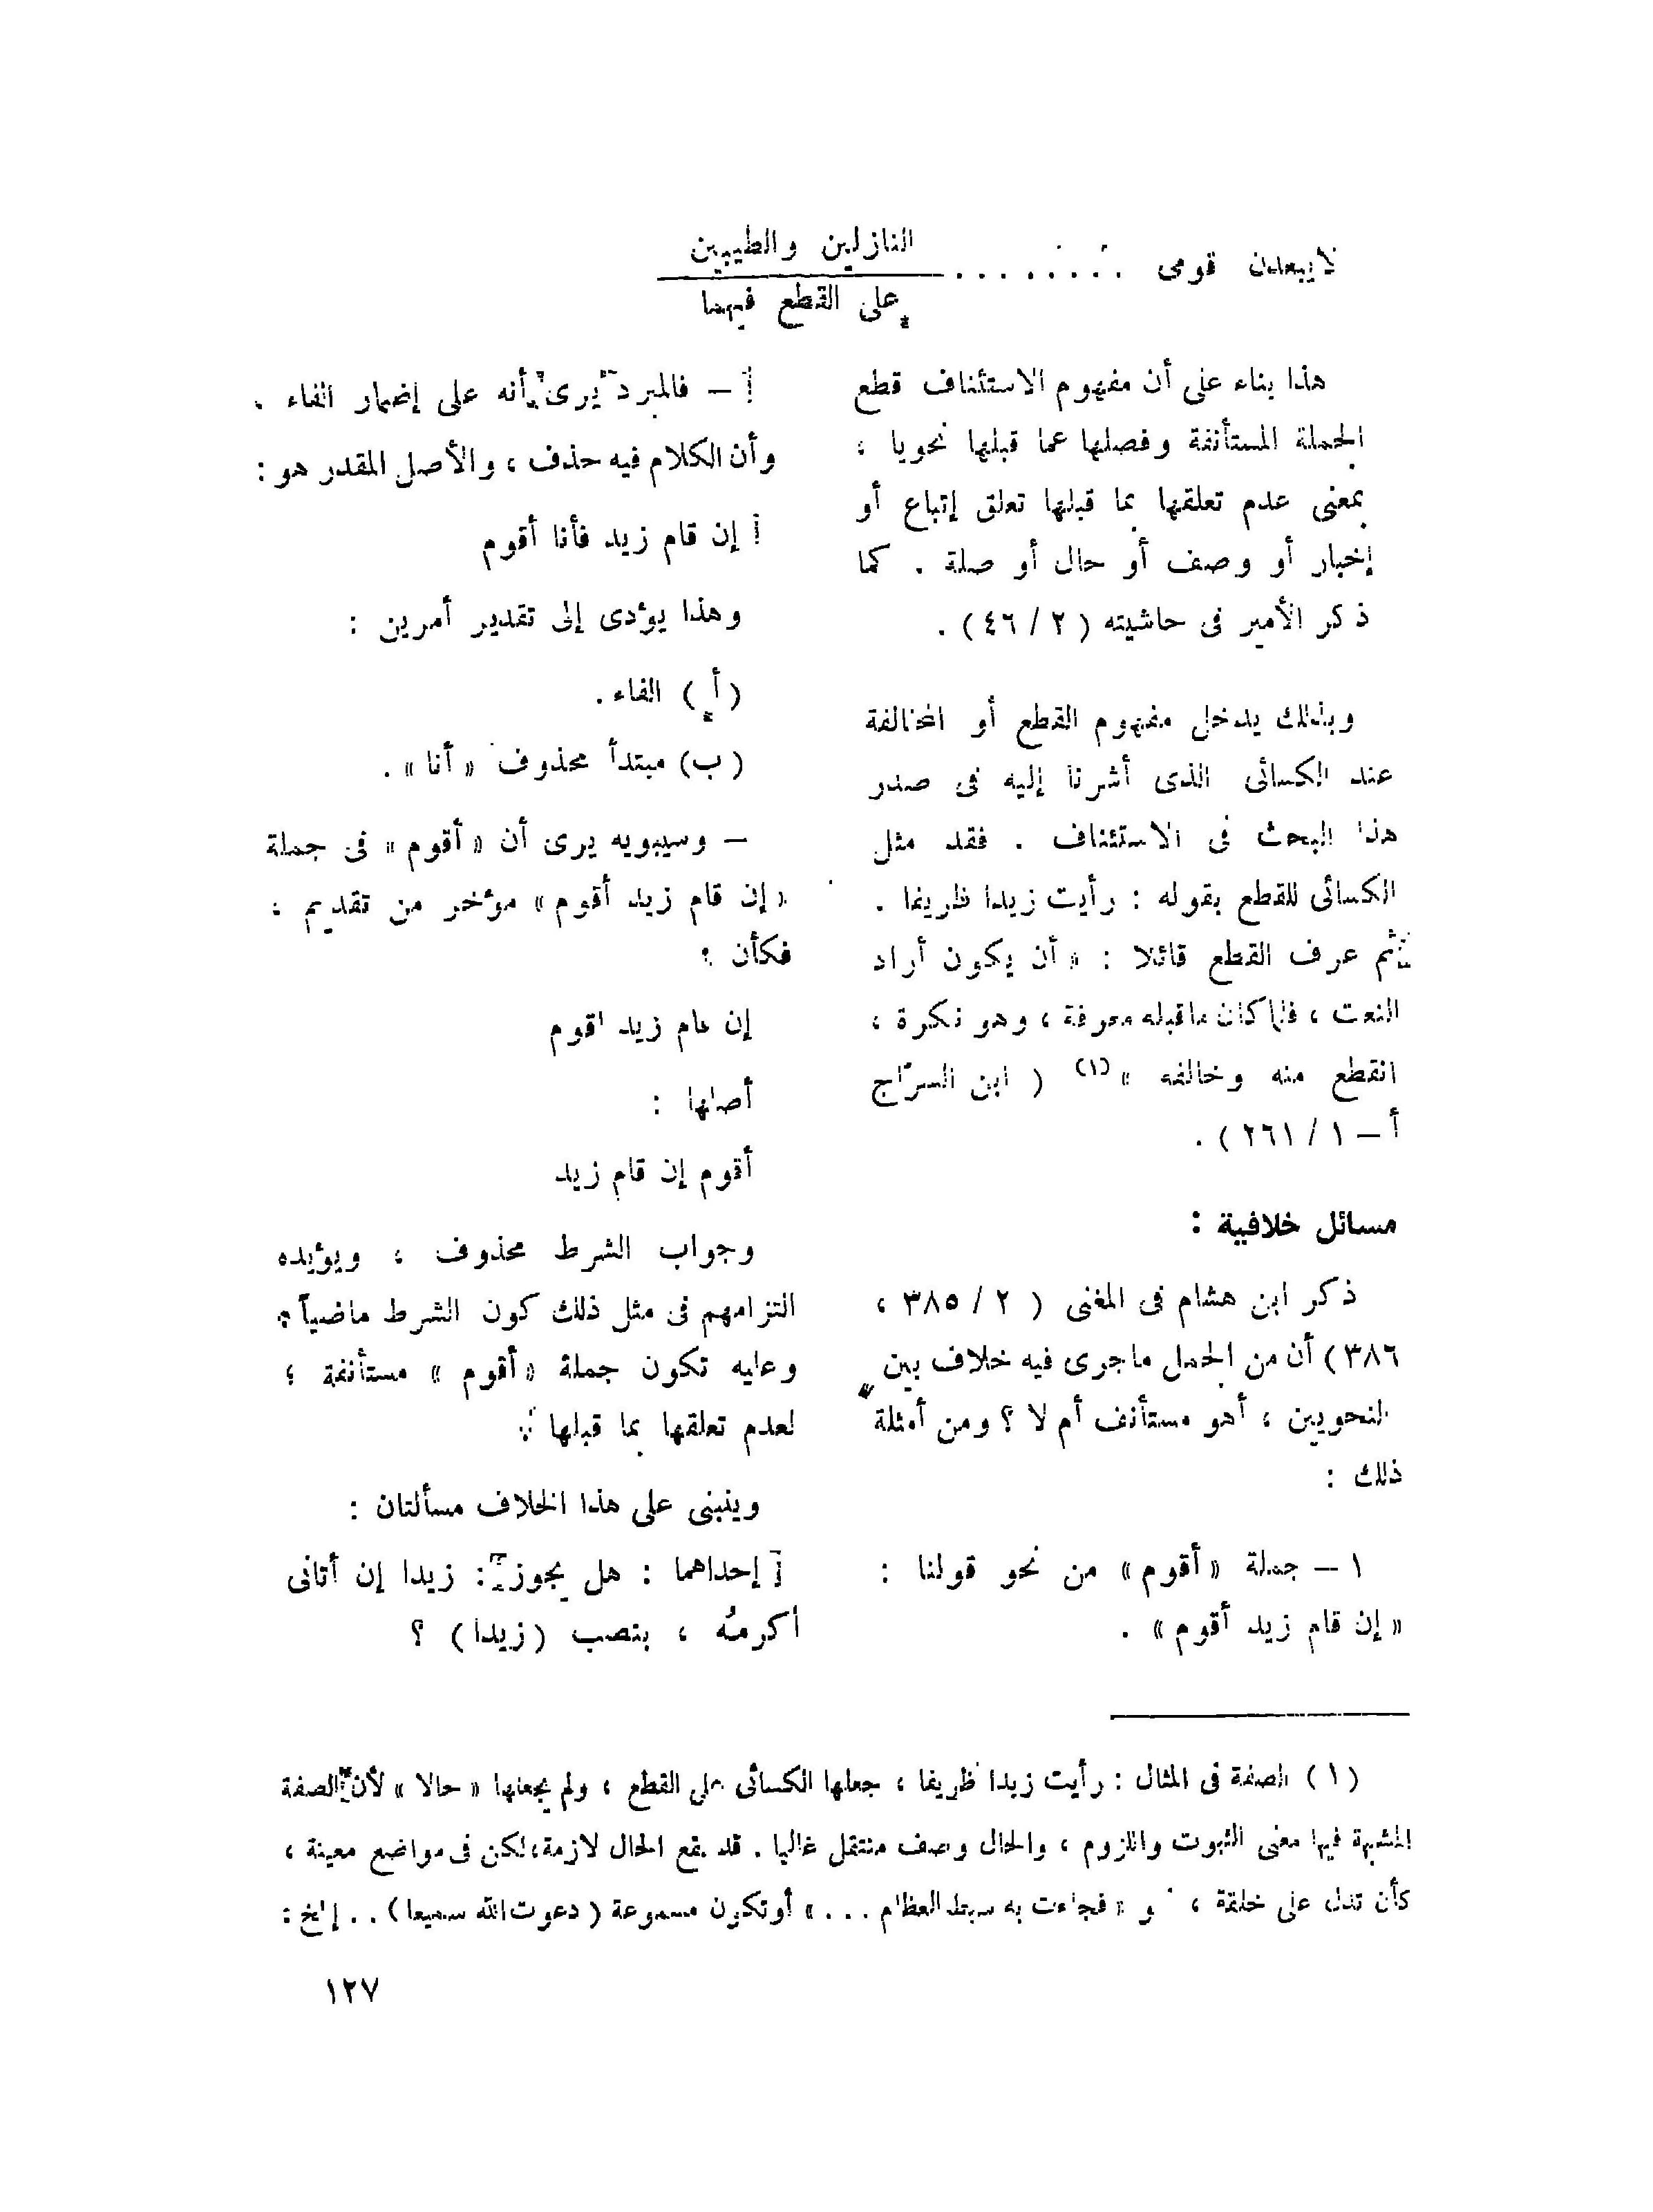 النازلين والطيبين
لايبعدن قومى . . . . . . . .
على القطع فيهما
هذا بناء على أن مفهوم الاستئناف قطع
الجملة المستأنفة وفصلها عما قبلها نحويا ؛
بمعنى عدم تعلقها بما قبلها تعلق إتباع أو
إخبار أو وصف أو حال أو صلة . كما
ذكر الأمير فى حاشيته ( ٢ / ٤٦ ) .
وبذلك يدخل مفهوم القطع أو المخالفة
عند الكسائى الذى أشرنا إليه فى صدر
هذا البحث فى الاستئناف . فقد مثل
الكسائى للقطع بقوله : رأيت زيدا ظريفا .
ثم عرف القطع قائلا : « أن يكون أراد
النعت ، فلما كان ماقبله معرفة ، وهو نكرة ،
انقطع منه وخالفه » (١) ( ابن السرّاج
أ – ١ / ٢٦١ ) .
مسائل خلافية :
ذكر ابن هشام فى المغنى ( ٢ / ٣٨٥ ،
٣٨٦ ) أن من الجمل ماجرى فيه خلاف بين
النحويين ، أهو مستأنف أم لا ؟ ومن أمثلة
ذلك :
١ – جملة « أقوم » من نحو قولنا :
« إن قام زيد أقوم » .
– فالمبرد يرى أنه على إضمار الفاء .
وأن الكلام فيه حذف ، والأصل المقدر هو :
إن قام زيد فأنا أقوم
وهذا يؤدى إلى تقدير أمرين :
( أ ) الفاء .
( ب ) مبتدأ محذوف « أنا » .
– وسيبويه يرى أن « أقوم » فى جملة
« إن قام زيد أقوم » مؤخر من تقديم ؛
فكأن :
إن قام زيد أقوم
أصلها :
أقوم إن قام زيد
وجواب الشرط محذوف ، ويؤيده
التزامهم فى مثل ذلك كون الشرط ماضياً ؛
وعليه تكون جملة « أقوم » مستأنفة ؛
لعدم تعلقها بما قبلها .
وينبنى على هذا الخلاف مسألتان :
إحداهما : هل يجوز : زيدا إن أتانى
أكرمه ، بنصب ( زيدا ) ؟
( ١ ) الصفة فى المثال : رأيت زيدا ظريفا ، جعلها الكسائى على القطع ، ولم يجعلها « حالا » لأن الصفة
المشبهة فيها معنى الثبوت واللزوم ، والحال وصف منتقل غالبا . قد يقع الحال لازمة، لكن فى مواضع معينة ،
كأن تدل على خلقة ، و « فجاءت به سبط العظام . . . » أو تكون مسموعة ( دعوت الله سميعا ) . . إلخ :
١٢٧